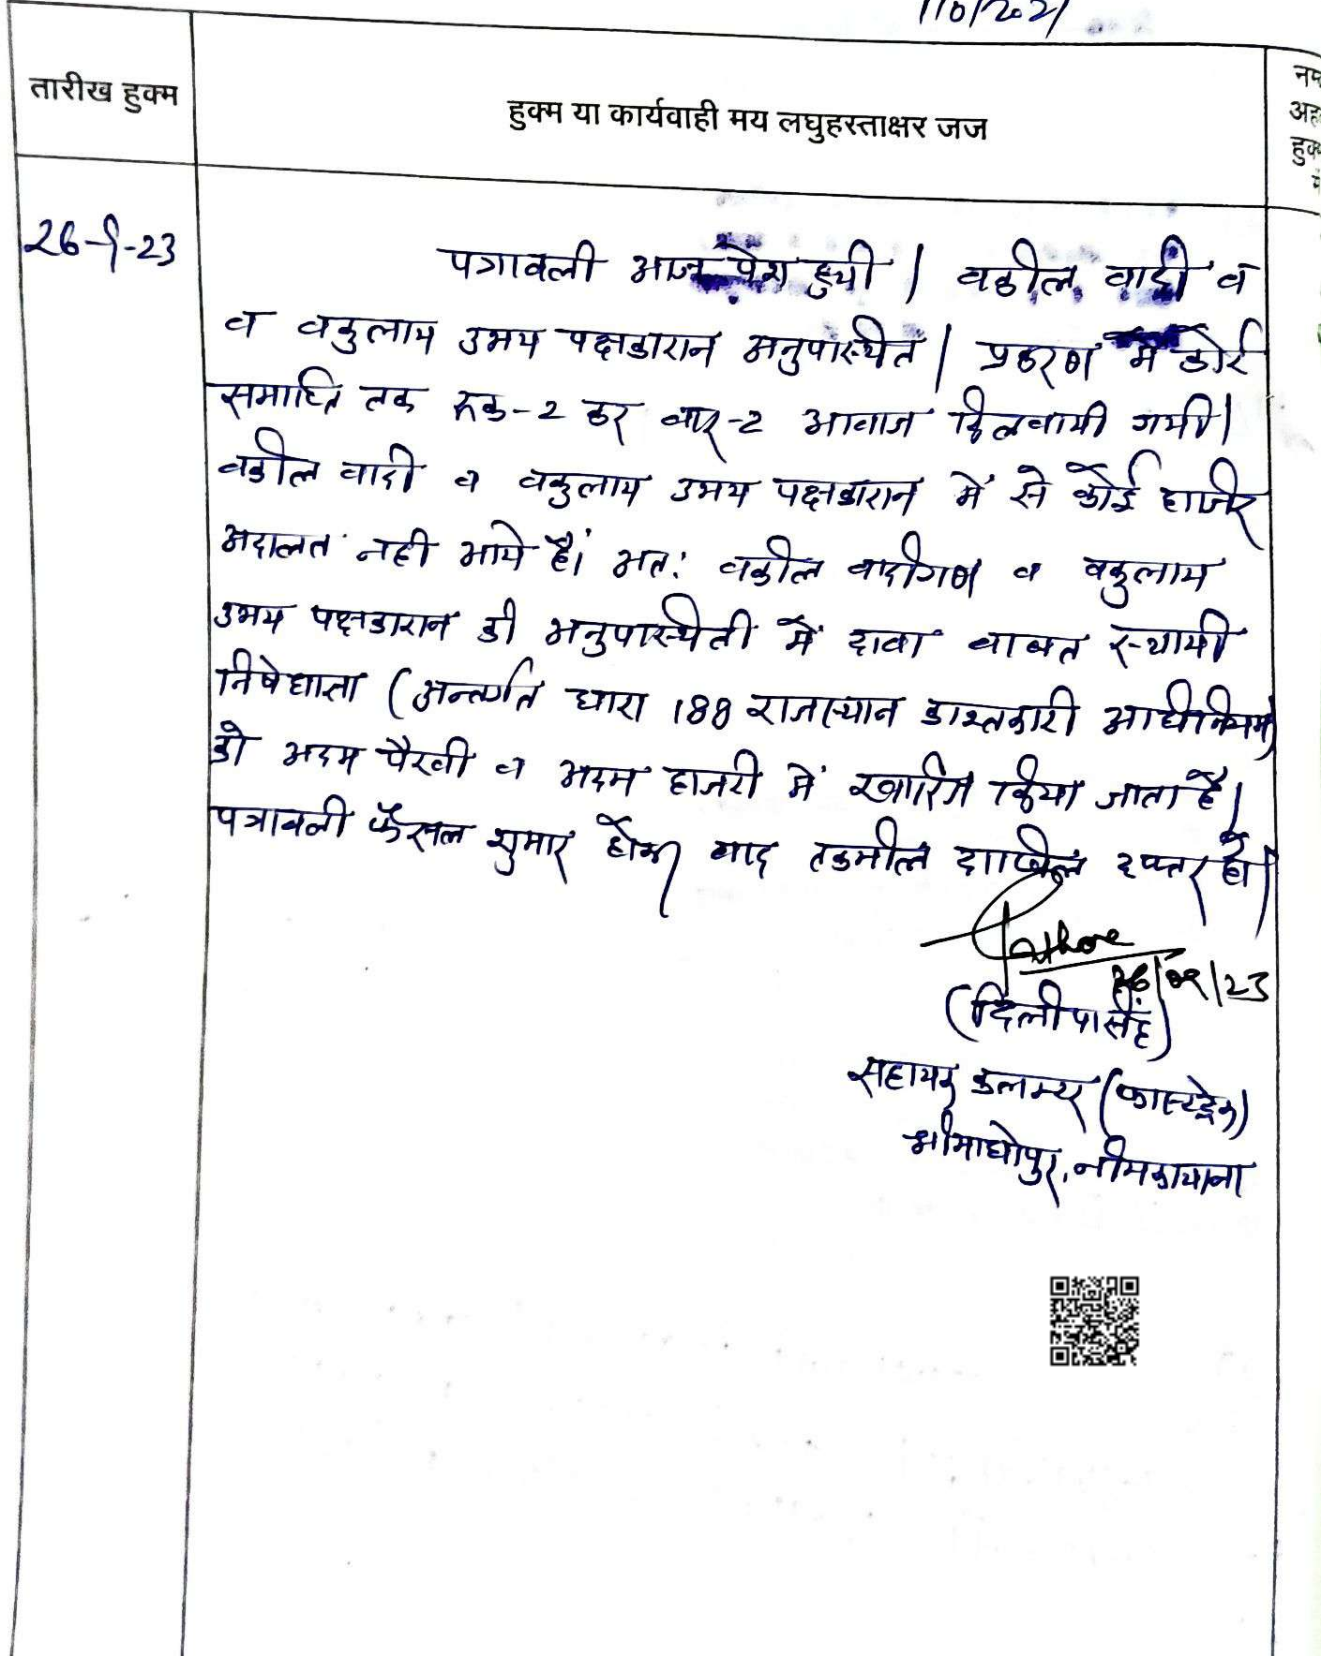 110/2021
तारीख हुक्म
हुक्म या कार्यवाही मय लघुहस्ताक्षर जज
26-9-23
पत्रावली आज पेश हुयी। वकील वादी व
व वकुलाय उभय पक्षकारान अनुपस्थित। प्रकरण में कोर्ट
समाप्ति तक रूक-2 कर बार-2 आवाज दिलवायी गयी।
वकील वादी व वकुलाय उभय पक्षकारान में से कोई हाजिर
अदालत नही आये हैं। अतः वकील वादीगण व वकुलाय
उभय पक्षकारान की अनुपस्थिती में दावा बाबत स्थायी
निषेधाज्ञा (अन्तर्गत धारा 188 राजस्थान काश्तकारी अधिनियम)
को अदम पैरवी व अदम हाजरी में खारिज किया जाता है।
पत्रावली फैसल शुमार होकर बाद तकमील दाखिल दफ्तर हो।
26/09/23
(दिलीपसिंह)
सहायक कलक्टर (फास्टट्रेक)
श्रीमाधोपुर, नीमकाथाना